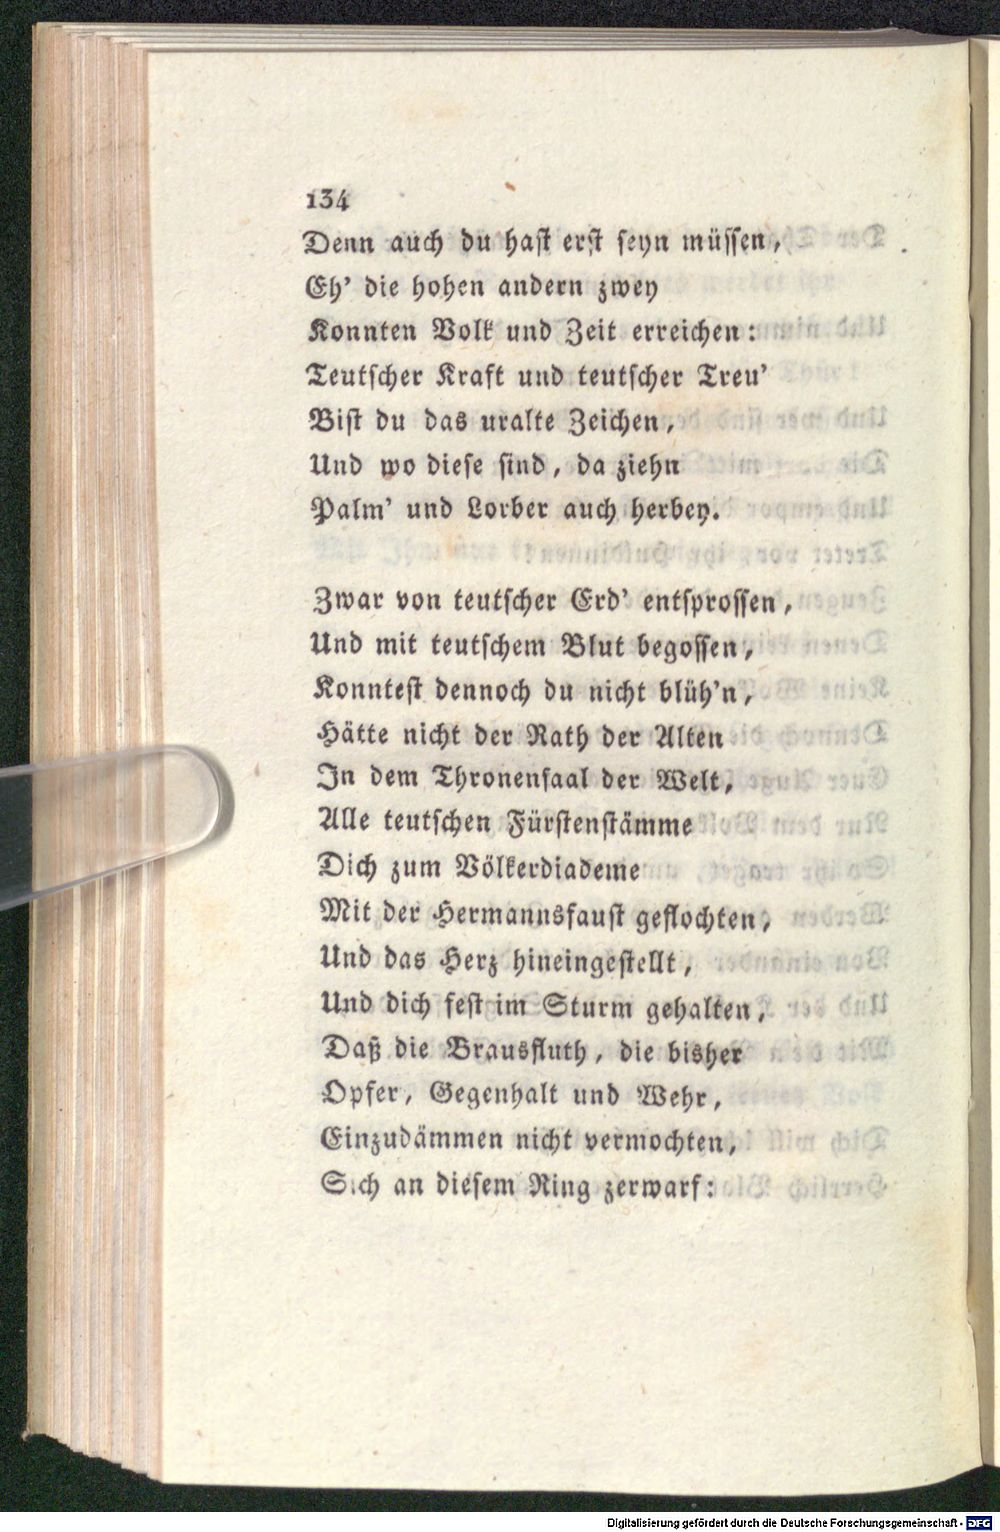 134
Denn auch du hast erst seyn müssen,
Eh' die hohen andern zwey
Konnten Volk und Zeit erreichen:
Teutscher Kraft und teutscher Treu'
Bist du das uralte Zeichen,
Und wo diese sind, da ziehn
Palm' und Lorber auch herbey.
Zwar von teutscher Erd' entsprossen,
Und mit teutschem Blut begossen,
Konntest dennoch du nicht blüh'n,
Hätte nicht der Rath der Alten
In dem Thronensaal der Welt,
Alle teutschen Fürstenstämme
Dich zum Völkerdiademe
Mit der Hermannsfaust geflochten,
Und das Herz hineingestellt,
Und dich fest im Sturm gehalten,
Daß die Brausfluth, die bisher
Opfer, Gegenhalt und Wehr,
Einzudämmen nicht vermochten,
Sich an diesem Ring zerwarf:
Digitalisierung gefördert durch die Deutsche Forschungsgemeinschaft - DFG